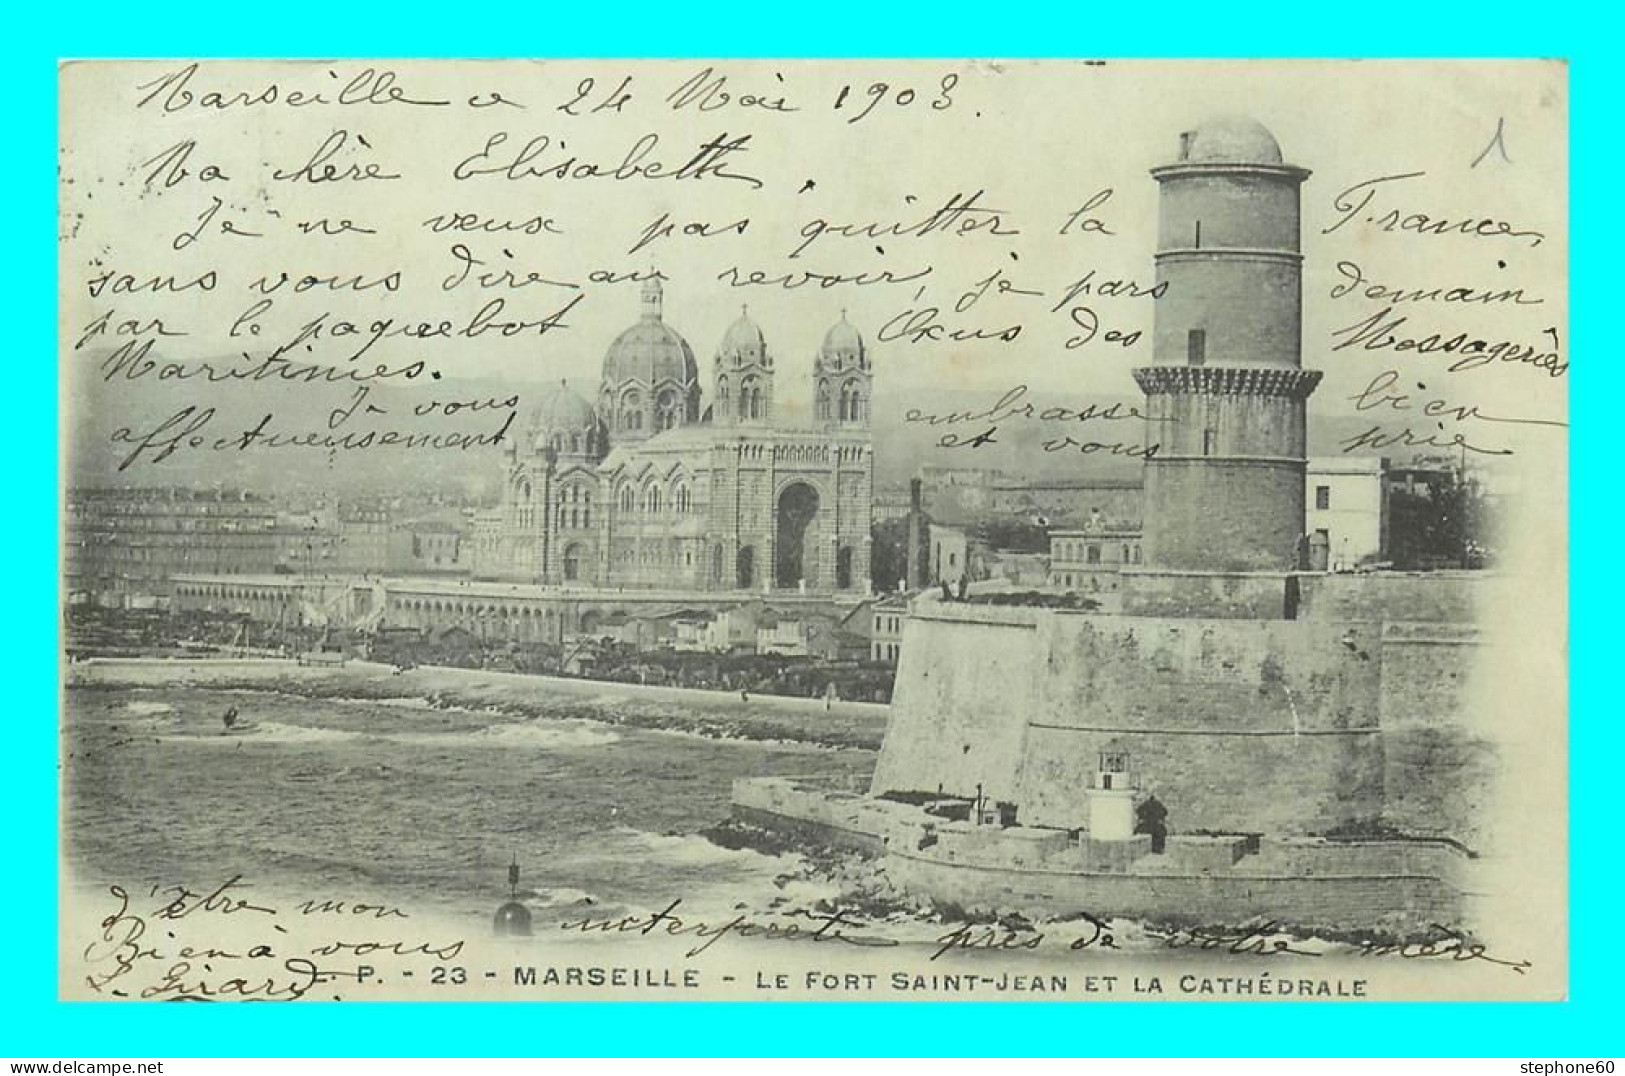 Marseille le 24 Mai 1903.
Ma chère Elisabeth,
Je ne veux pas quitter la France,
sans vous dire au revoir, je pars demain
par le paquebot Oxus des Messageries
Maritimes.
Je vous embrasse bien
affectueusement et vous prie
d'être mon interprète près de votre mère
Bien à vous
L. Girard
P. - 23 - MARSEILLE - LE FORT SAINT-JEAN ET LA CATHÉDRALE
1
stephone60